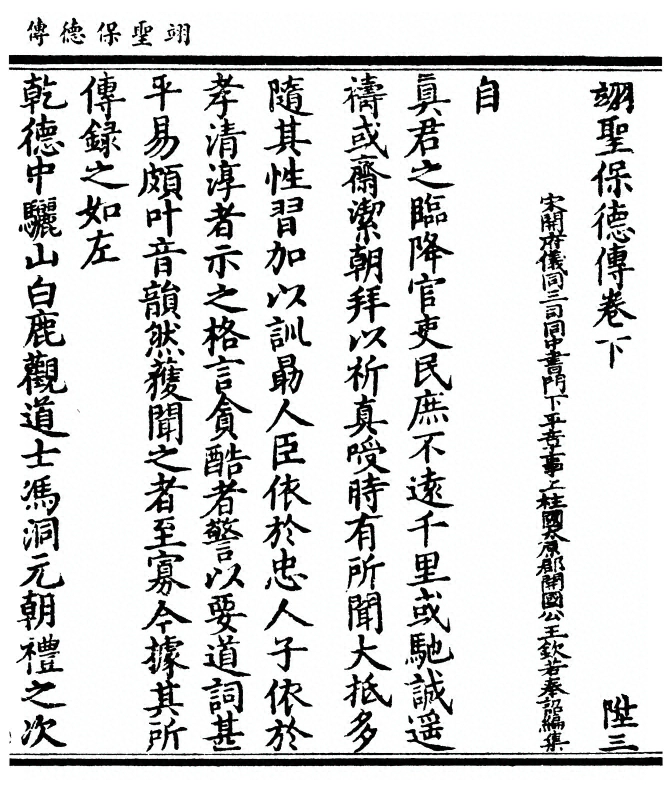 翊聖保德傳
翊聖保德傳卷下　陞三
宋開府儀同三司同中書門下平章事上柱國太原郡開國公王欽若奉詔編集
自
真君之臨降官吏民庶不遠千里或馳誠遥
禱或齋潔朝拜以祈真受時有所聞大抵多
隨其性習加以訓勗人臣依於忠人子依於
孝清淳者示之格言貪酷者警以要道詞甚
平易頗叶音韻然獲聞之者至寡今據其所
傳録之如左
乾德中驪山白鹿觀道士馮洞元朝禮之次